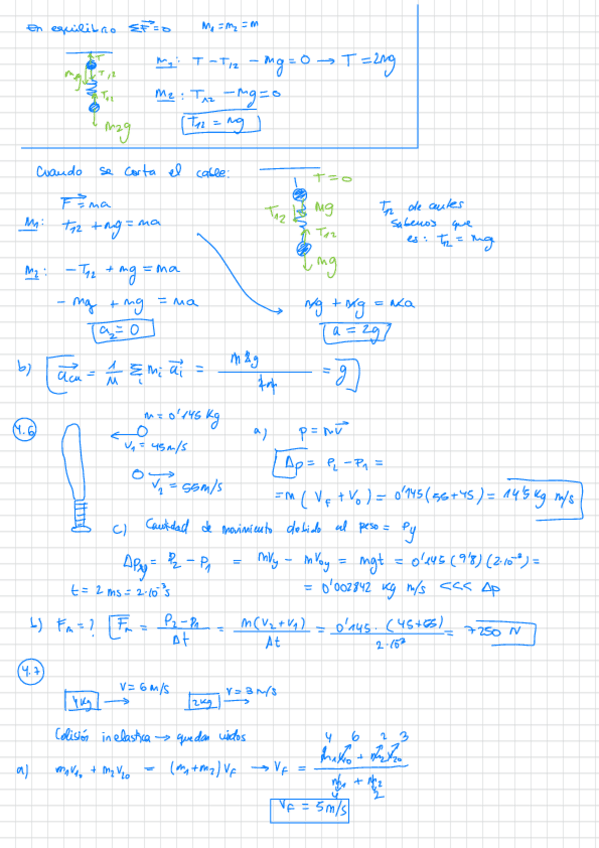 En equilibrio ΣF⃗=0   m₁=m₂=m
m₁: T - T₁₂ - mg = 0 → T = 2mg
m₂: T₁₂ - mg = 0
T₁₂ = mg
T
mg T₁₂
T₁₂
m₂g
Cuando se corta el cable:
F⃗=ma
m₁: T₁₂ + mg = ma
m₂: -T₁₂ + mg = ma
- mg + mg = ma
a₂ = 0
T=0
T₁₂ mg
T₁₂
mg
T₁₂ de antes
sabemos que
es: T₁₂ = mg
mg + mg = ma
a = 2g
b) a⃗cm = 1/M Σᵢ mᵢ a⃗ᵢ = m2g/2m = g
4.6
m = 0'145 kg
v₁ = 45 m/s
v₂ = 55 m/s
a) p = mv⃗
Δp = p₂ - p₁ =
= m (V_F + V₀) = 0'145 (55+45) = 14'5 kg m/s
c) Cantidad de movimiento debido al peso = Py
ΔPy = P₂ - P₁ = mVy - mV₀y = mgt = 0'145 (9'8) (2·10⁻³) =
t = 2 ms = 2·10⁻³s
= 0'002842 kg m/s <<< Δp
b) Fm = ? Fm = (P₂-P₁)/Δt = m(V₂+V₁)/Δt = 0'145 · (45+55)/2·10⁻³ = 7250 N
4.7
4kg V = 6 m/s 2kg V = 3 m/s
Colisión inelastica → quedan unidos
a) m₁V₁₀ + m₂V₂₀ = (m₁+m₂) V_F → V_F = (m₁V₁₀ + m₂V₂₀)/(m₁ + m₂)
4 6 2 3
4 2
V_F = 5 m/s